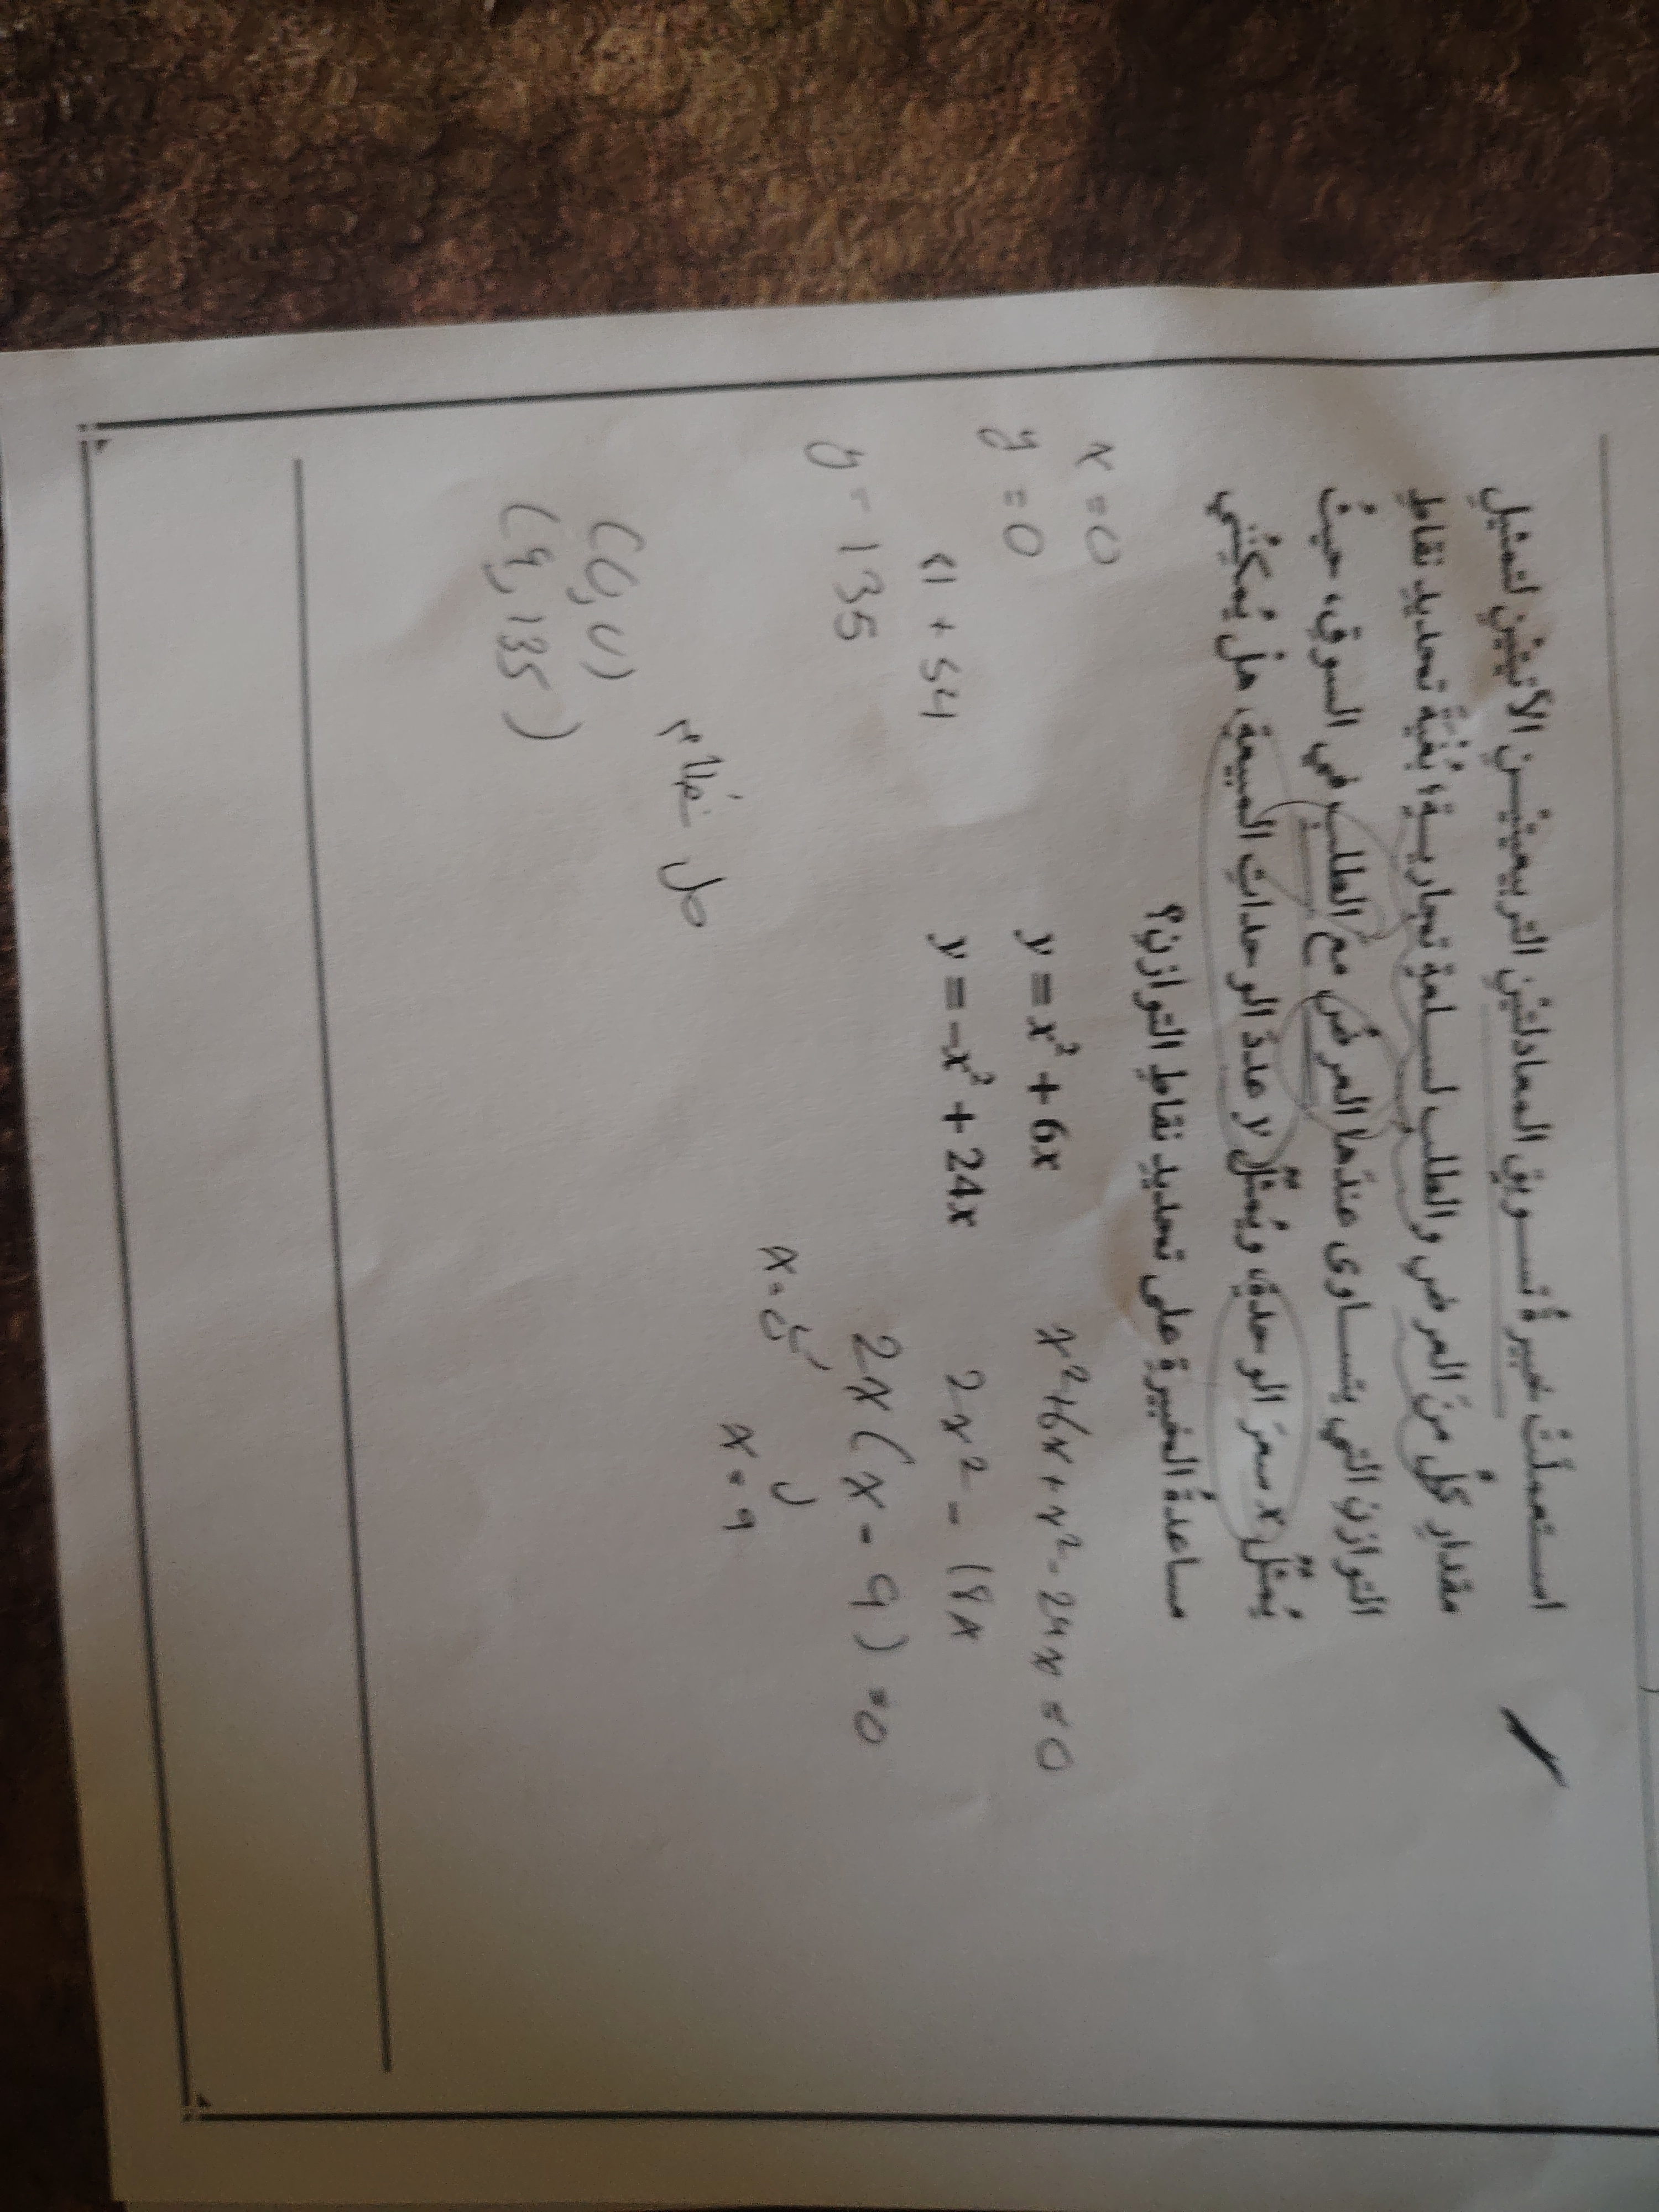 استعملَتْ خبيرةُ تسويقٍ المعادلتَيْنِ التربيعيتَيْنِ الآتيتَيْنِ لتمثيلِ
مقدارِ كلٍّ منَ العرضِ والطلبِ لسلعةٍ تجاريةٍ؛ بُغْيَةَ تحديدِ نقاطِ
التوازنِ التي يتساوى عندَها العرضُ معَ الطلبِ في السوقِ، حيثُ
يُمثِّلُ x سعرَ الوحدةِ، ويُمثِّلُ y عددَ الوحداتِ المبيعةِ، هلْ يُمكِنُني
مساعدةُ الخبيرةِ على تحديدِ نقاطِ التوازنِ؟
y = x² + 6x
y = -x² + 24x
x²+6x+x²-24x=0
2x² - 18x
2x(x-9)=0
x=
x=9
x=0
y=0
81+54
y=135
حل
(9,135)